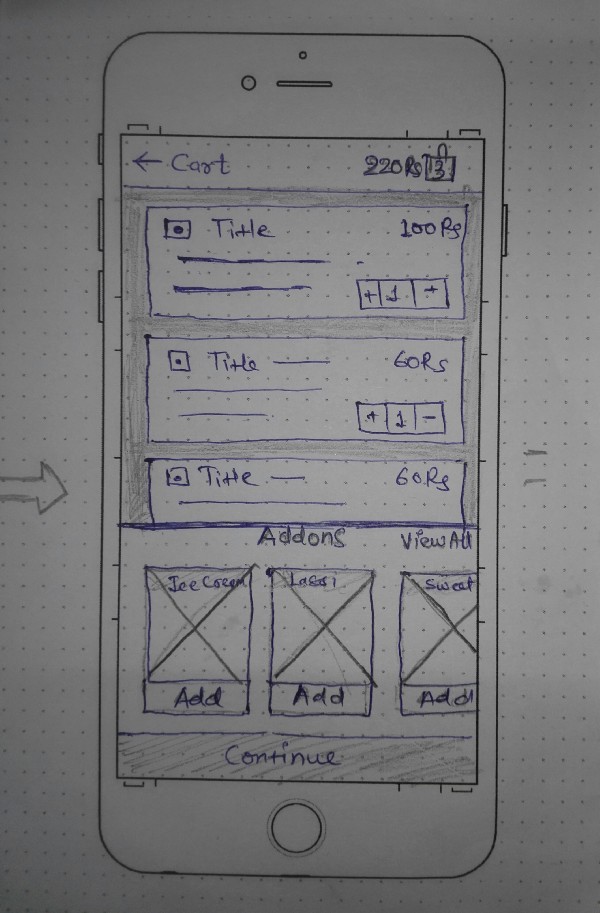 ← Cart 220Rs 3
Title 100Rs
+ 1 -
Title 60Rs
+ 1 -
Title 60Rs
Addons View All
Ice Cream Lassi Sweet
Add Add Add
Continue